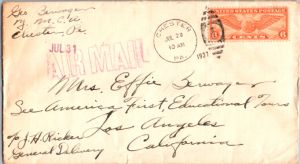 Geo Sewager
% Y. M. C. A.
Chester, Pa.
JUL 31
AIR MAIL
CHESTER
JUL 28
10 AM
PA.
1937
UNITED STATES POSTAGE
6 CENTS 6
Mrs. Effie Sewager
See America First Educational Tours
Los Angeles
California
c/o J. H. Ricker
General Delivery